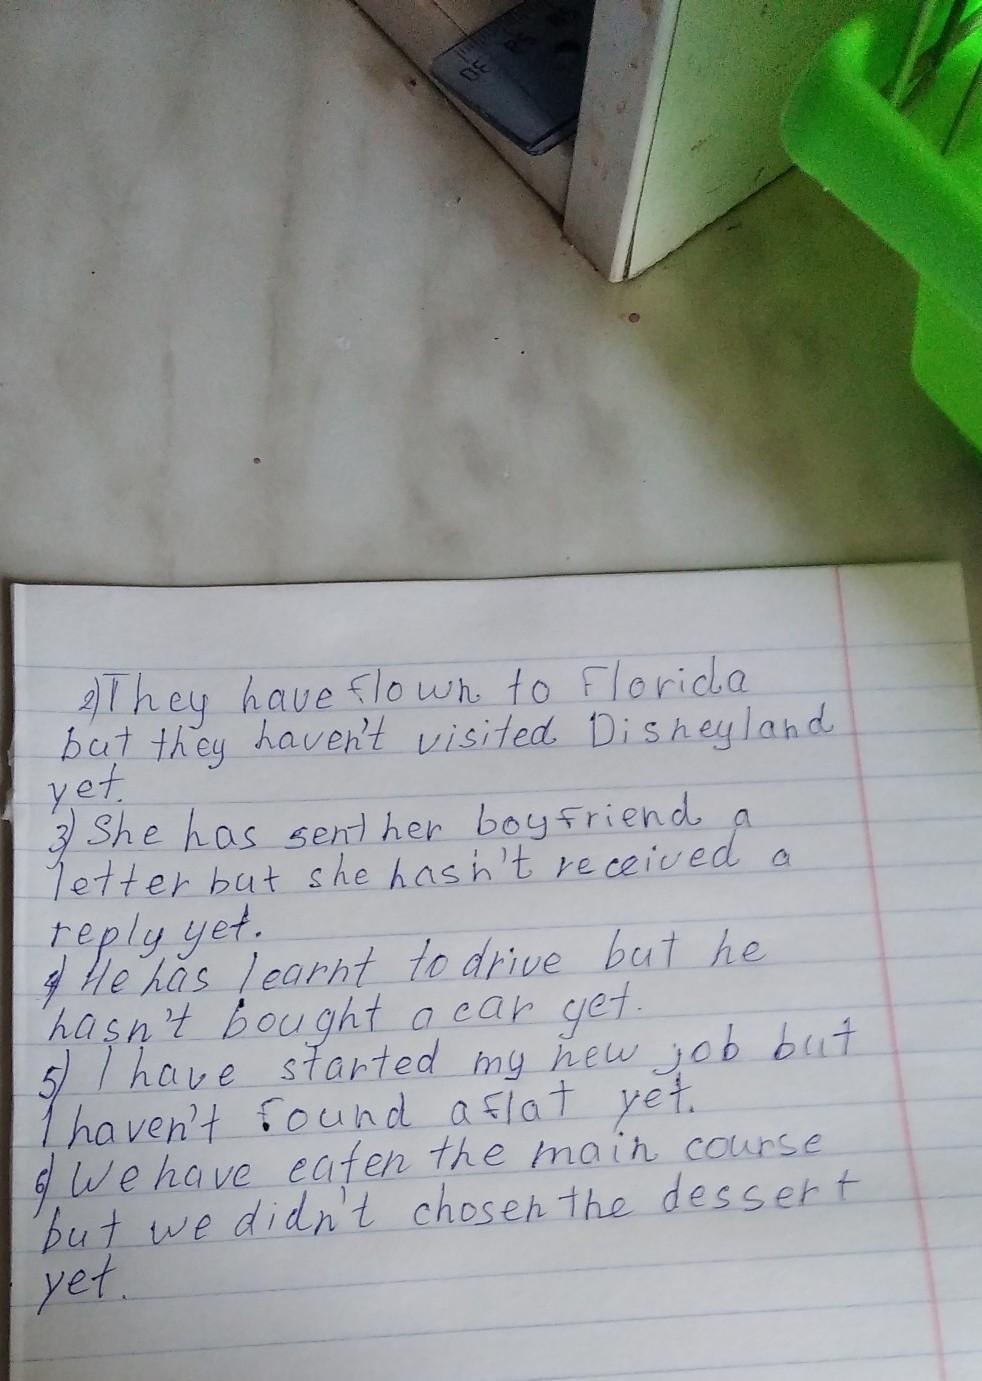 DE RS
2) They have flown to Florida
but they haven't visited Disneyland
yet.
3) She has sent her boyfriend a
letter but she hasn't received a
reply yet.
4) He has learnt to drive but he
hasn't bought a car yet.
5) I have started my new job but
I haven't found a flat yet.
6) We have eaten the main course
but we didn't chosen the dessert
yet.